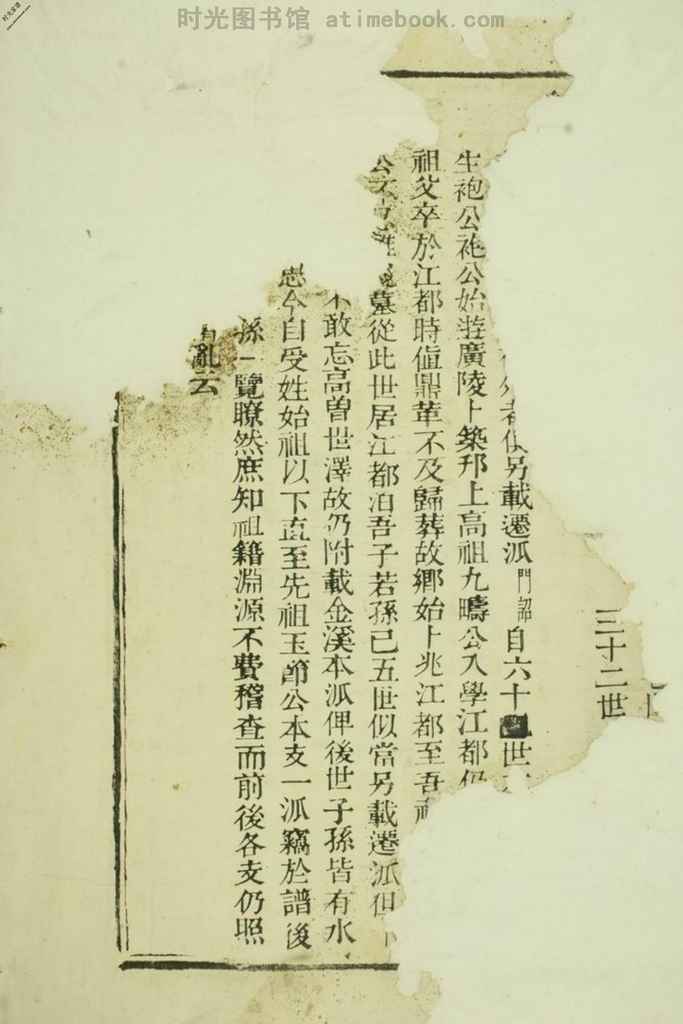 时光图书馆 atimebook.com
三十二世
者 另載遷派門譜自六十 世
生袍公袍公始遊廣陵卜築邗上高祖九疇公入學江都
祖父卒於江都時値鼎革不及歸葬故鄉始卜兆江都至吾
公 墓從此世居江都洎吾子若孫已五世似當另載遷派但
不敢忘高曽世澤故仍附載金溪本派俾後世子孫皆有水
思今自受姓始祖以下直至先祖玉節公本支一派竊於譜後
孫一覽瞭然庶知祖籍淵源不費稽查而前後各支仍照
亂云